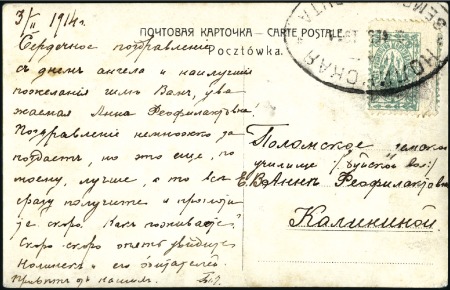 3/II 1914 г.
ПОЧТОВАЯ КАРТОЧКА – CARTE POSTALE
Pocztówka.
НОЛИНСКАЯ
Сердечное поздравление
съ днемъ ангела и наилучшія
пожеланія шлю Вамъ, ува
жаемая Анна Феофилактовна!
Поздравленіе немножко за
поздаетъ, но это еще, по
моему, лучше, а то всѣ
сразу получите и прочита
ете скоро. Какъ поживаете?
Скоро-скоро опять увидите
Нолинскъ и его обитателей.
Приветъ нашимъ.
Поломское земское
училище
Е.В. Аннѣ Феофилактовнѣ
Калининой.